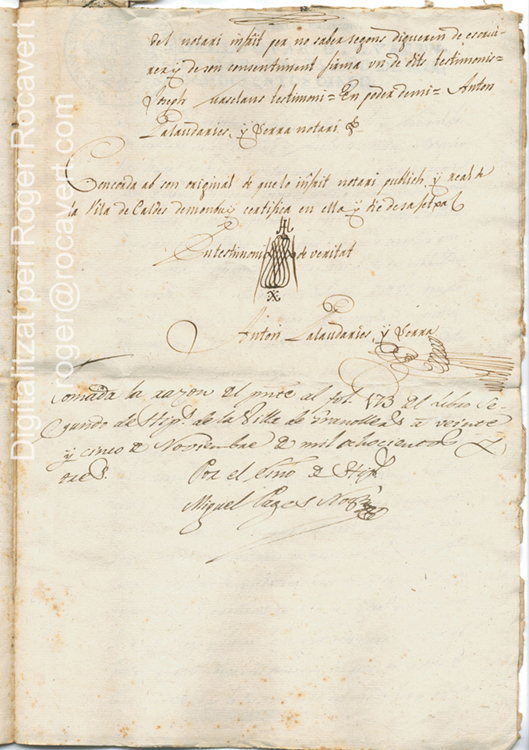 del notari infrit per no saber segons digueren de escriu-
rer, y de son consentiment firma un de dits testimonis=
Joseph Maselans testimoni= En poder de mi= Anton
Palaudaries, y Serra notari
Concorda ab son original de que lo infrit notari publich, y real de
la Vila de Caldes de montbuy certifica en ella y die
En testimoni de veritat
Anton Palaudaries, y Serra
omada la razon el pnte al fol. 173 del Libro Se-
gundo de Hip.s de la Villa de Granollers a veinte
y cinco de Noviembre de mil ochocientos
Por el Esno de Hip.
Miguel Pages Not
Digitalitzat per Roger Rocavert
roger@rocavert.com